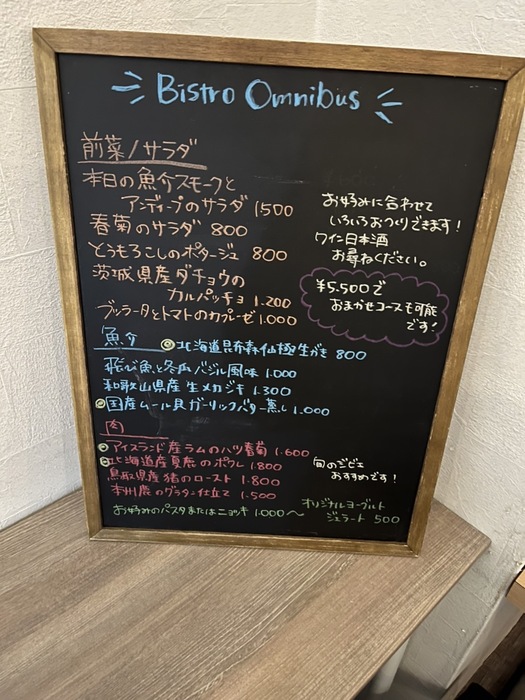 Bistro Omnibus
前菜/サラダ
本日の魚介スモークと
アンディーブのサラダ 1500
春菊のサラダ 800
とうもろこしのポタージュ 800
茨城県産ダチョウの
カルパッチョ 1.200
ブッラータとトマトのカプレーゼ 1.000
お好みに合わせて
いろいろおつくりできます!
ワイン日本酒
お尋ねください。
¥5.500で
おまかせコースも可能
です!
魚介
◎北海道昆布森仙極生がき 800
飛び魚と冬瓜バジル風味 1.000
和歌山県産 生メカジキ 1.300
◎国産ムール貝ガーリックバター蒸し 1.000
肉
◎アイスランド産ラムのハツ香菊 1.600
◎北海道産夏鹿のポワレ 1.800
鳥取県産 猪のロースト 1.800
本州鹿のグラタン仕立て 1.500
旬のジビエ
おすすめです!
お好みのパスタまたはニョッキ 1.000〜
オリジナルヨーグルト
ジェラート 500